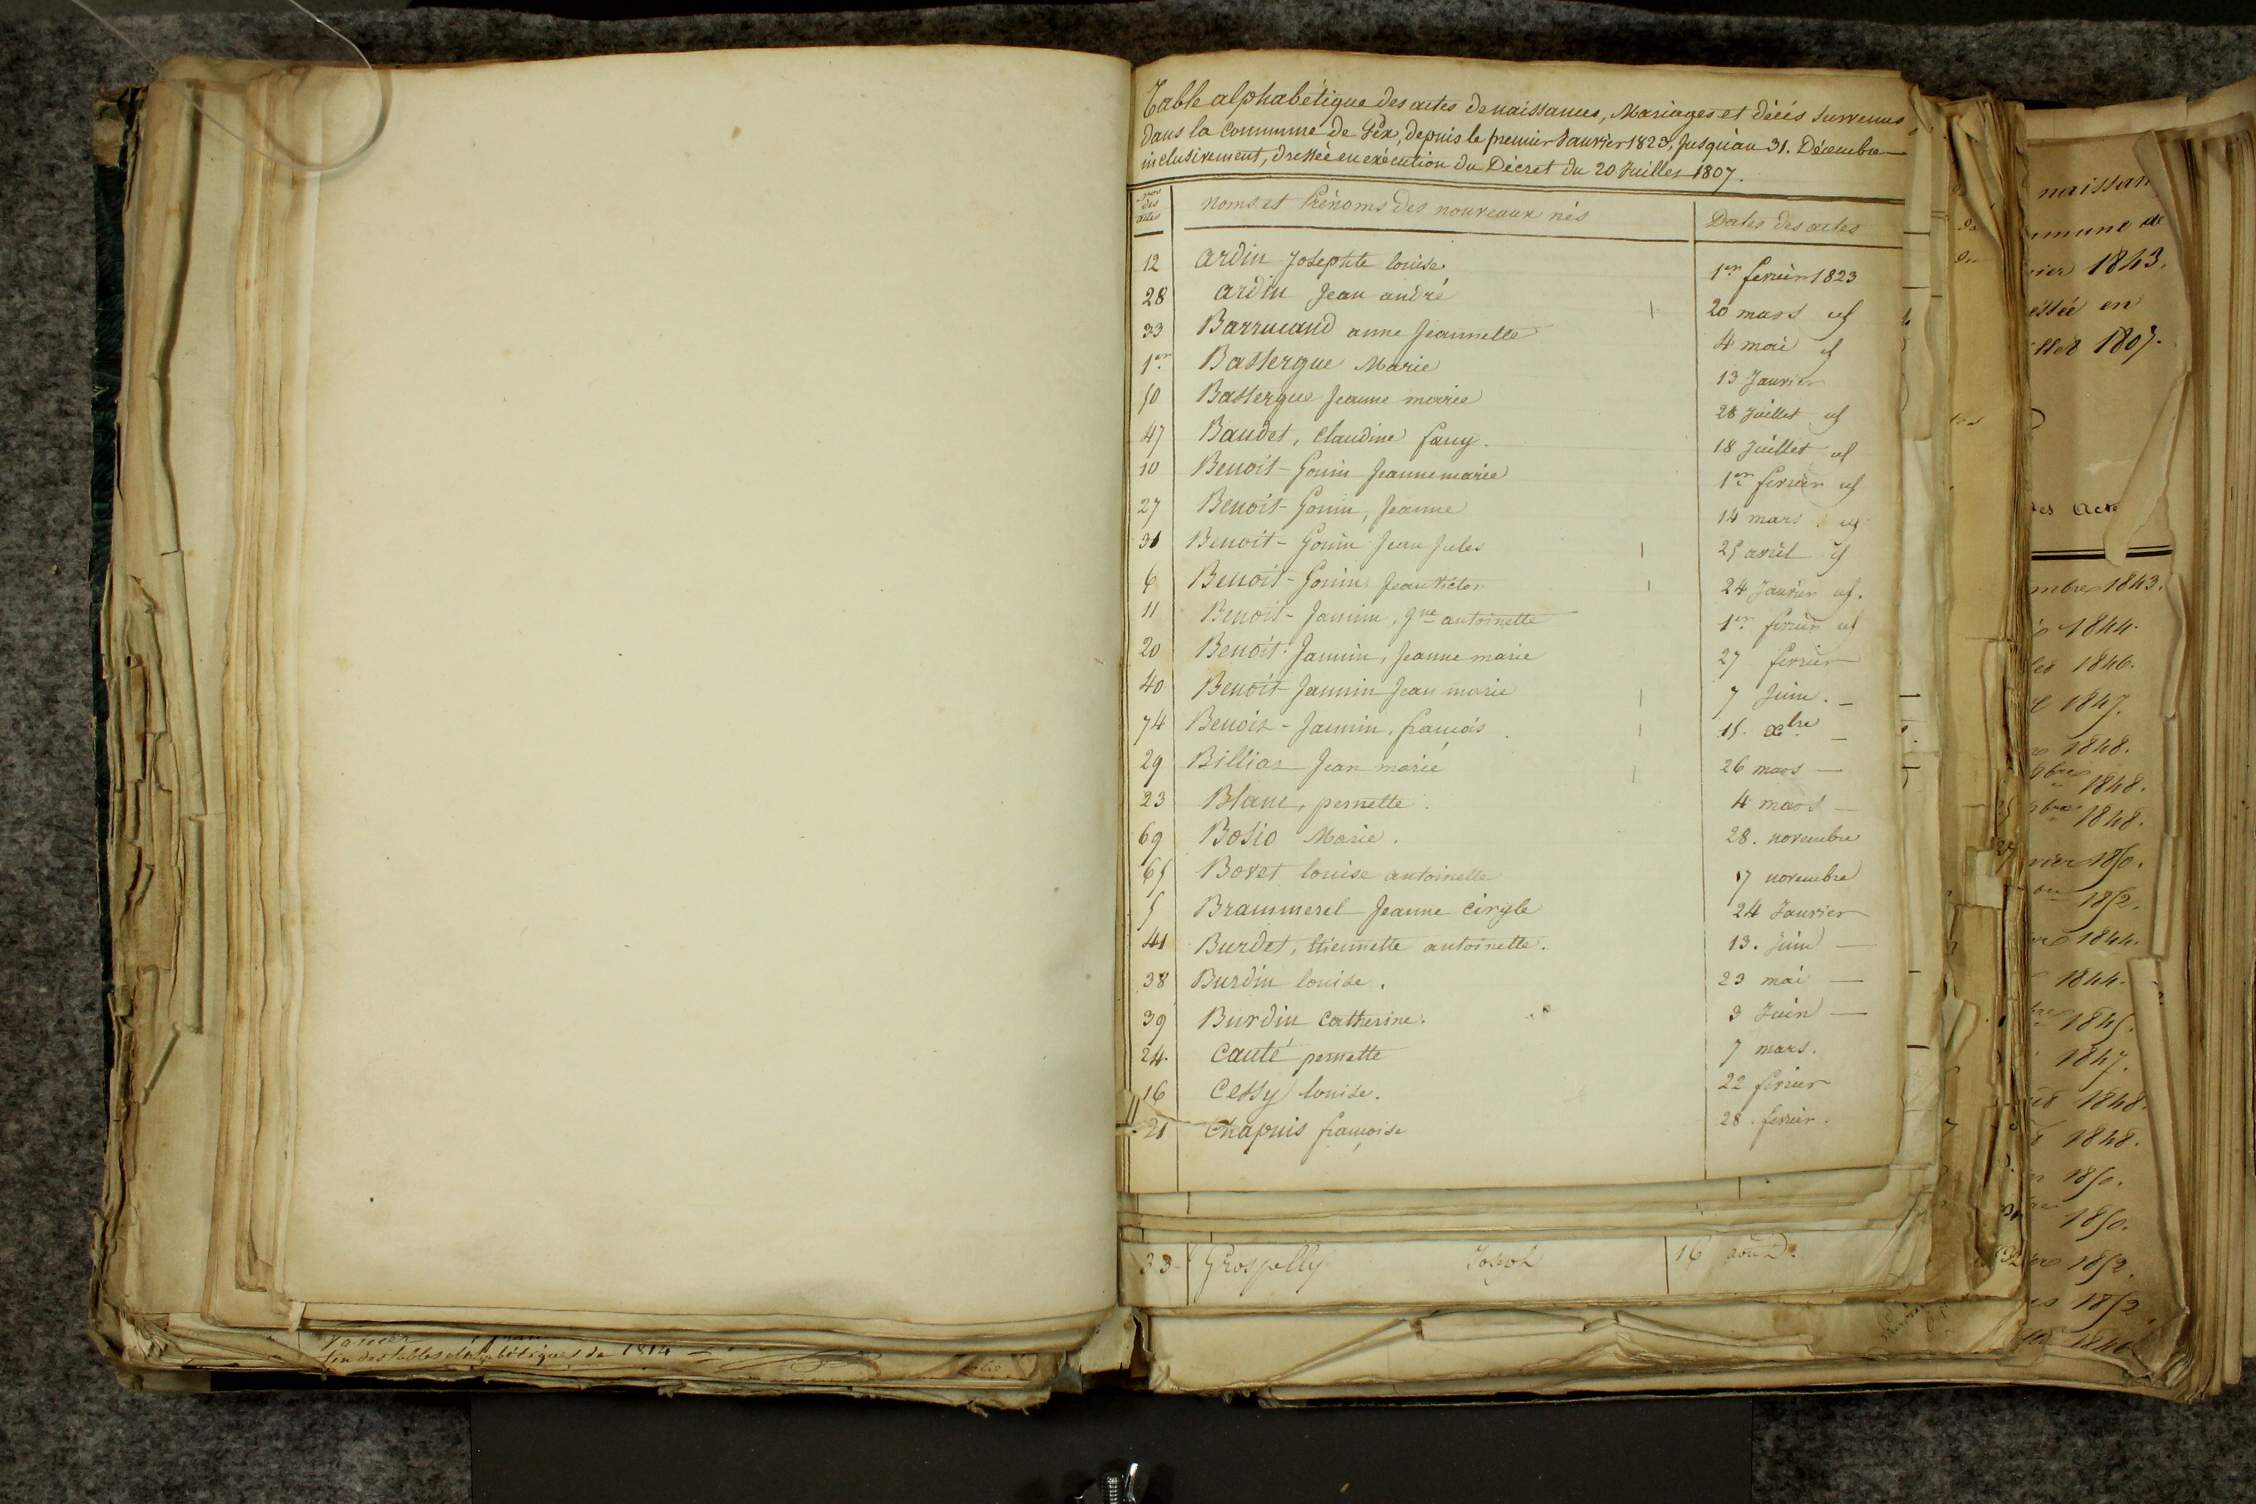 Table alphabétique des actes de naissances, Mariages et décés survenus
dans la Commune de Gex, depuis le premier Janvier 1823, Jusqu'au 31. Décembre
inclusivement, dressée en exécution du Décret du 20 Juillet 1807.
Nos des actes noms et Prénoms des nouveaux nés Dates des actes
12 Ardin Josephte louise 1er fevrier 1823
28 Ardin Jean andré 20 mars
33 Barrucand anne Jeannette 4 mai
1er Bassergue Marie 13 Janvier
50 Bassergue Jeanne marie 28 Juillet
47 Baudet, Claudine fany. 18 Juillet
10 Benoit-Gonin Jeanne marie 1er fevrier
27 Benoit-Gonin, Jeanne 14 mars
31 Benoit-Gonin Jean Jules 25 avril
6 Benoit-Gonin Jean Victor 24 Janvier
11 Benoit-Jannin, antoinette 1er fevrier
20 Benoit-Jannin, Jeanne marie 27 fevrier
40 Benoit Jannin Jean marie 7 Juin. -
74 Benoit-Jannin, françois 15. xbre -
29 Jean marie 26 mars -
23 Blanc, pernette. 4 mars -
69 Bosio Marie. 28. novembre
65 Bovet louise antoinette 17 novembre
5 Brammerel Jeanne 24 Janvier
41 Burdet, Etiennette antoinette. 13. Juin -
38 Burdin louise. 23 mai -
39 Burdin Catherine. 3 Juin -
24. Canté pernette 7 mars.
16 Cessy louise. 22 fevrier
21 Chapuis françoise 28. fevrier.
33 Joseph 16
fin des tables alphabétiques de 1814
1843.
1807.
1843.
1844.
1846.
1847.
1848.
1848.
1848.
1850.
1852.
1844.
1844.
1845.
1847.
1848.
1848.
1850.
1850.
1852.
1852.